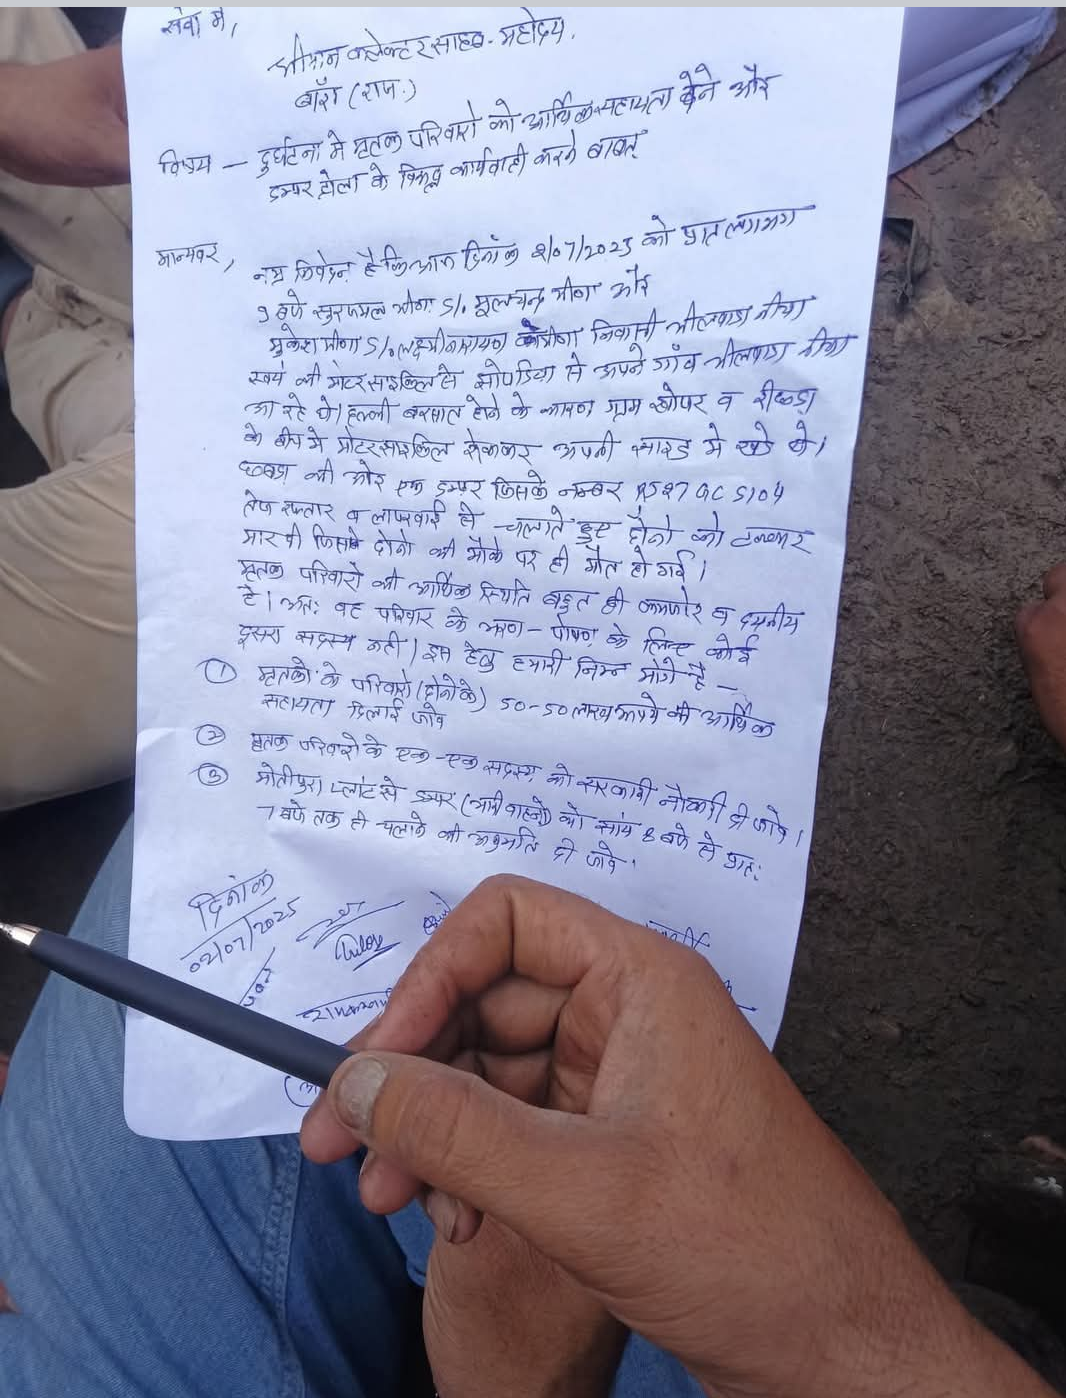 सेवा में,
श्रीमान कलेक्टर साहब महोदय,
बाँरा (राज.)
विषय – दुर्घटना मे मृतक परिवारो को आर्थिक सहायता देने और
डम्पर होला के विरूद्ध कार्यवाही करने बाबत्
मान्यवर,
नम्र निवेदन है कि आज दिनाँक 2/07/2025 को प्रात लगभग
9 बजे सुरजमल मीणा S/. मूलचन्द मीणा और
मुकेश मीणा S/. लक्ष्मीनारायण मीणा निवासी भीलवाडा नीचा
स्वयं की मोटरसाइकिल से झोपडिया से अपने गाँव भीलवाडा नीचा
आ रहे थे। हल्की बरसात होने के कारण ग्राम खोपर व रीछडा
के बीच मे मोटरसाइकिल रोककर अपनी साइड मे खडे थे।
छबडा की ओर एक डम्पर जिसके नम्बर RJ27 GC 5104
तेज रफ्तार व लापरवाई से चलाते हुए दोनो को टक्कर
मार दी जिससे दोनो की मौके पर ही मौत हो गई।
मृतक परिवारो की आर्थिक स्थिति बहुत ही कमजोर व दयनीय
है। अत: वह परिवार के भरण-पोषण के लिए कोई
दूसरा सदस्य नही। इस हेतु हमारी निम्न मांगे है –
① मृतको के परिवारो (दोनो के) 50-50 लाख रूपये की आर्थिक
सहायता दिलाई जावे
② मृतक परिवारो के एक-एक सदस्य को सरकारी नौकरी दी जावे।
③ मोतीपुरा प्लांट से डम्पर (भारी वाहनो) को सांय 8 बजे से प्रात:
7 बजे तक ही चलाने की अनुमति दी जावे।
दिनाँक
02/07/2025